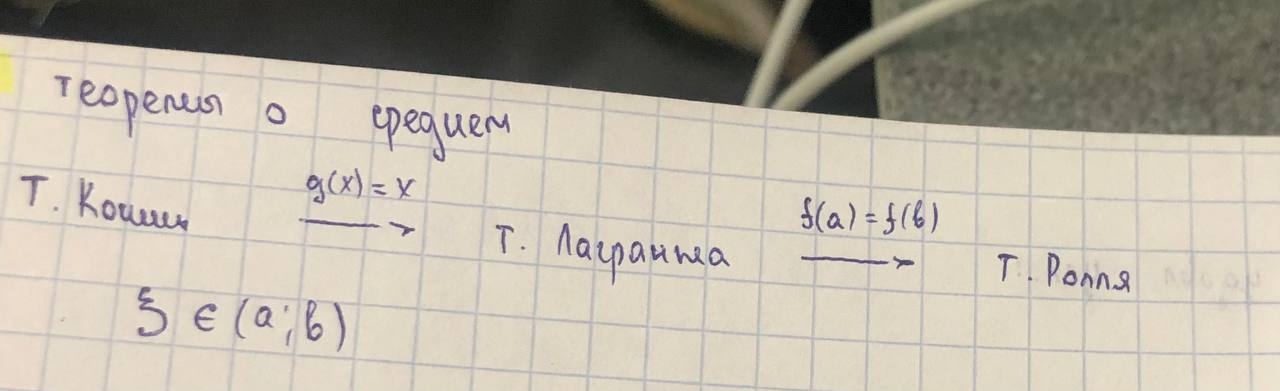 теоремы о среднем
Т. Коши g(x) = x → Т. Лагранжа f(a) = f(b) → Т. Ролля
ξ ∈ (a; b)